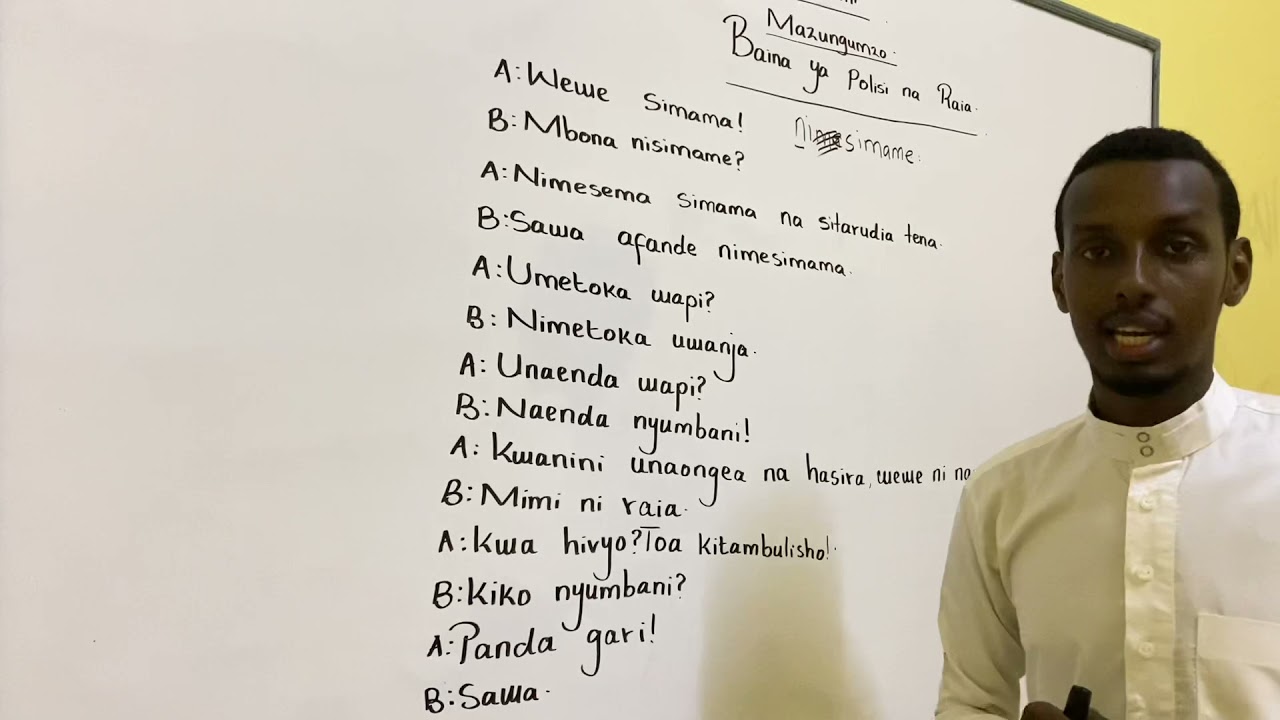 Mazungumzo.
Baina ya Polisi na Raia.
A: Wewe simama!
nisimame.
B: Mbona nisimame?
A: Nimesema simama na sitarudia tena.
B: Sawa afande nimesimama.
A: Umetoka wapi?
B: Nimetoka uwanja.
A: Unaenda wapi?
B: Naenda nyumbani!
A: Kwanini unaongea na hasira, wewe ni
B: Mimi ni raia.
A: Kwa hivyo? Toa kitambulisho!
B: Kiko nyumbani?
A: Panda gari!
B: Sawa.